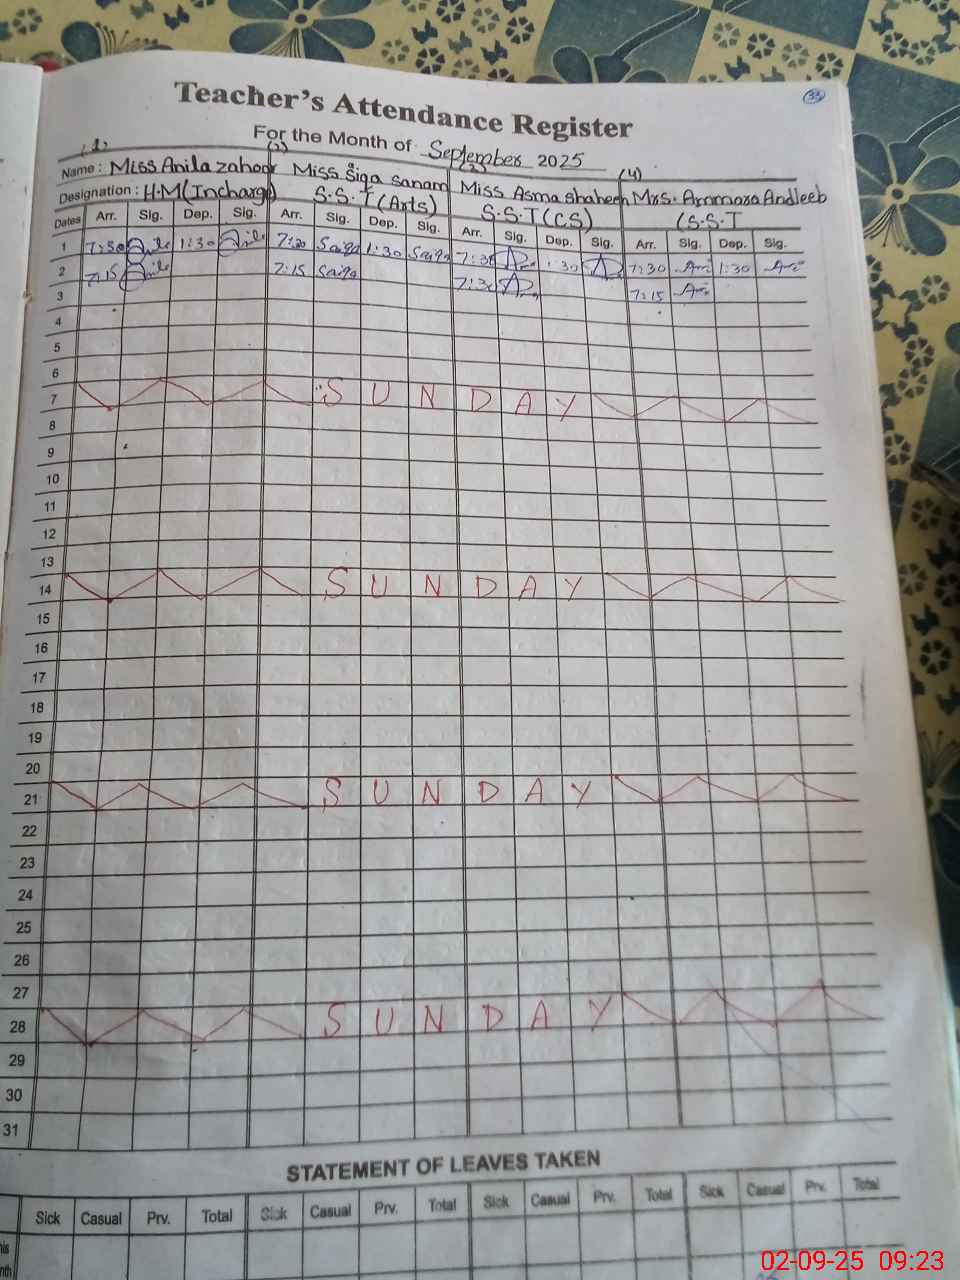 33
Teacher's Attendance Register
For the Month of September 2025
(1) (2) (4)
Name: Miss Anila zahoor Miss Siqa Sanam Miss Asma shaheen Mrs. Ammara Andleeb
Designation: H.M(Incharge) S.S.T(Arts) S.S.T(CS) (S.S.T
Dates Arr. Sig. Dep. Sig. Arr. Sig. Dep. Sig. Arr. Sig. Dep. Sig. Arr. Sig. Dep. Sig.
1 7:30 1:30 7:30 Saiqa 1:30 Saiqa 7:30 1:30 7:30 1:30
2 7:15 7:15 Saiqa 7:30 7:15
3
4
5
6
7 SUNDAY
8
9
10
11
12
13
14 SUNDAY
15
16
17
18
19
20
21 SUNDAY
22
23
24
25
26
27
28 SUNDAY
29
30
31
STATEMENT OF LEAVES TAKEN
Sick Casual Prv. Total Sick Casual Prv. Total Sick Casual Prv. Total Sick Casual Prv. Total
02-09-25 09:23